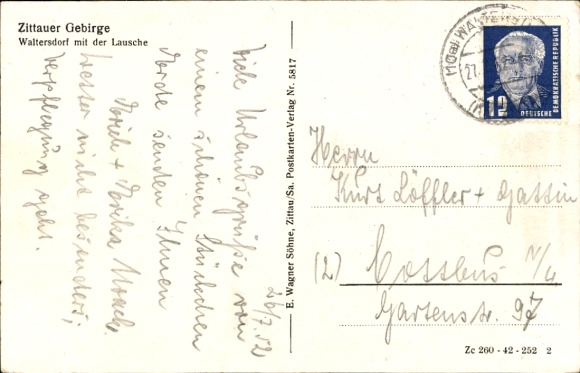 Zittauer Gebirge
Waltersdorf mit der Lausche
26/7.52
Viele Urlaubsgrüße von
einem schönen Stückchen
Erde senden Ihnen
Erich + Erika
Wetter nicht besonders;
Verpflegung geht.
E. Wagner Söhne, Zittau/Sa. Postkarten-Verlag Nr. 5817
WALTERSD
27.
12
DEUTSCHE
DEMOKRATISCHE REPUBLIK
Herrn
Kurt Löffler + Gattin
(2) Cottbus N/L
Gartenstr. 97
Zc 260 - 42 - 252 2